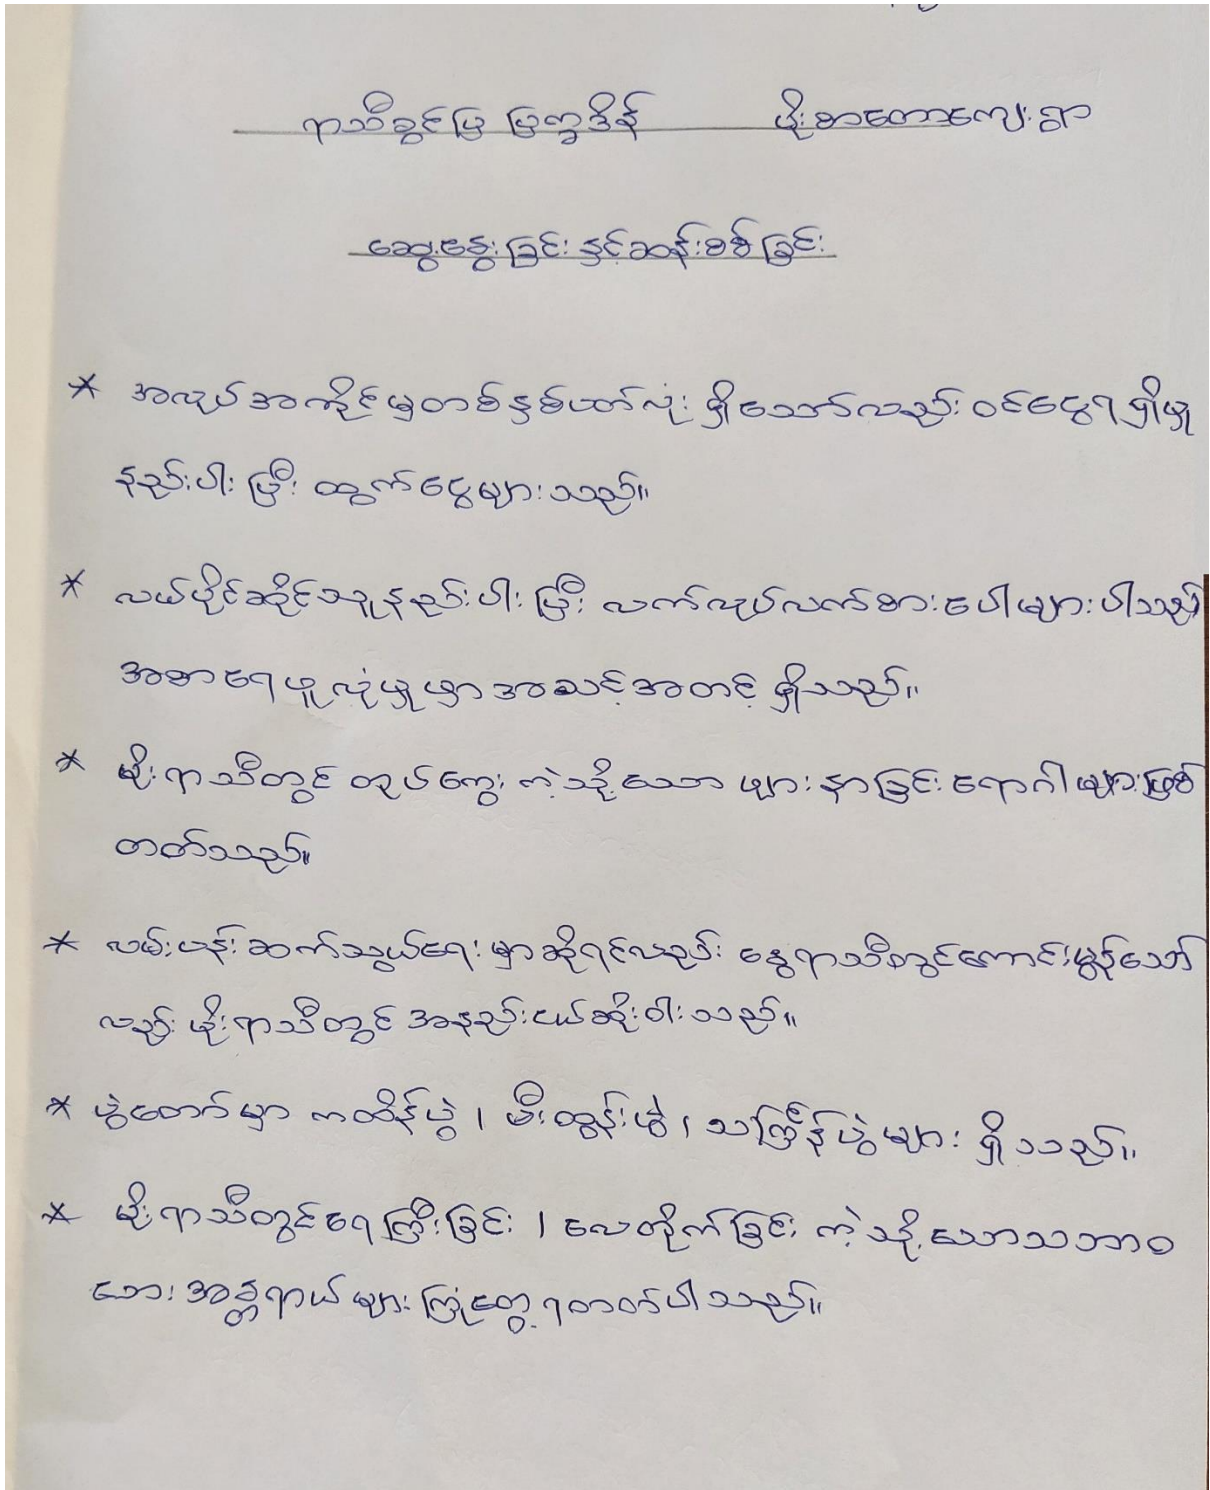 ရာသီခွင်ပြ ပြက္ခဒိန် ဖိုးစာတောကျေးရွာ
ဆွေးနွေးခြင်းနှင့်ဆန်းစစ်ခြင်း
* အလုပ်အကိုင်မှတစ်နှစ်ပတ်လုံး ရှိသော်လည်း ဝင်ငွေရရှိမှု
နည်းပါးပြီး ထွက်ငွေများသည်။
* လယ်ပိုင်ဆိုင်သူနည်းပါးပြီး လက်လုပ်လက်စားပေါများပါသည်
အစာရေဖူလုံမှုမှာ အသင့်အတင့် ရှိသည်။
* မိုးရာသီတွင် တုပ်ကွေးကဲ့သို့သော ဖျားနာခြင်းရောဂါများဖြစ်
တတ်သည်။
* လမ်းပန်းဆက်သွယ်ရေးမှာဆိုရင်လည်း နွေရာသီတွင်ကောင်းမွန်သော်
လည်း မိုးရာသီတွင် အနည်းငယ်ဆိုးဝါးသည်။
* ပွဲတော်မှာ ကထိန်ပွဲ၊ မီးထွန်းပွဲ၊ သင်္ကြန်ပွဲများ ရှိသည်။
* မိုးရာသီတွင်ရေကြီးခြင်း၊ လေတိုက်ခြင်းကဲ့သို့သောသဘာဝ
ဘေးအန္တရာယ်များကြုံတွေ့ရတတ်ပါသည်။